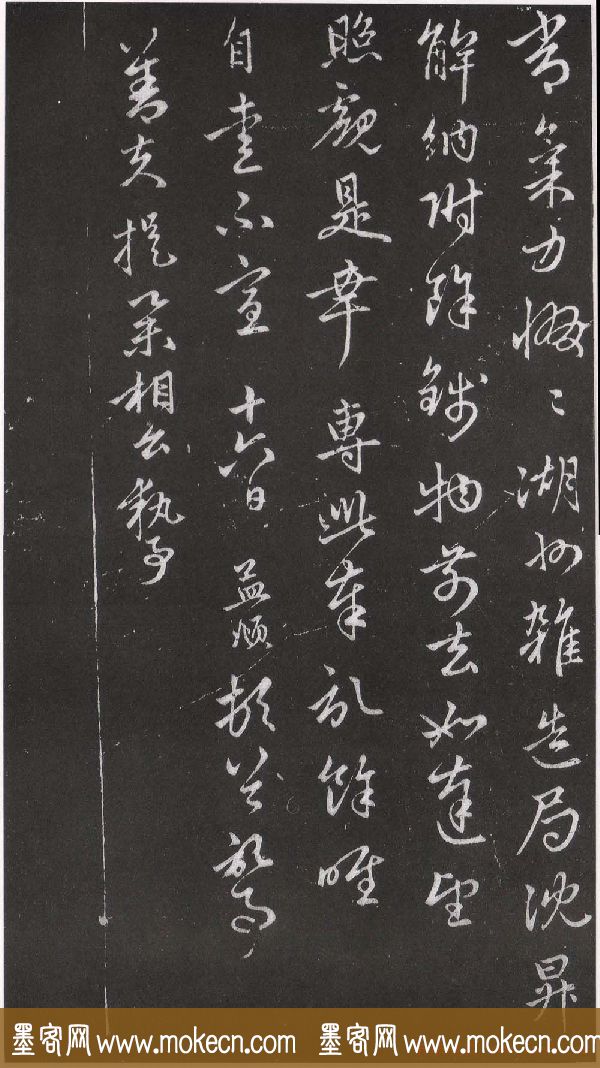 氣力湖州雜造局沈昇
解納附餘錢物前去如達望
照覷是幸專此奉記餘唯
自愛不宣十六日孟頫頓首記事
善夫提舉相公執事
墨客网 www.mokecn.com 墨客网 www.mokecn.com